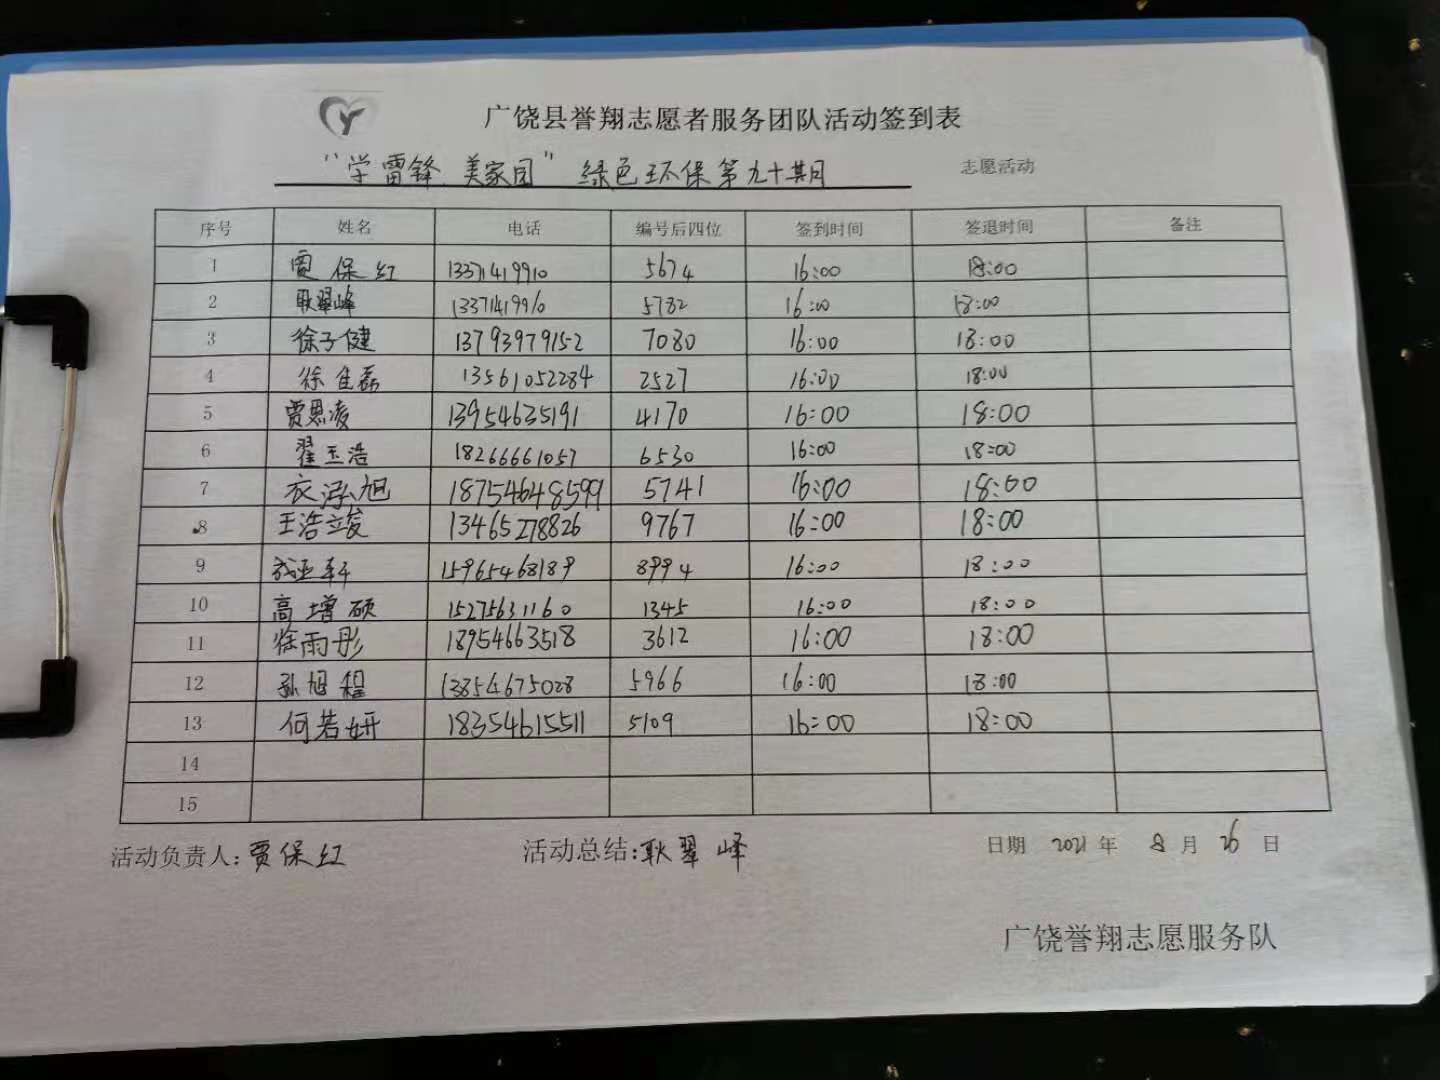 广饶县誉翔志愿者服务团队活动签到表
“学雷锋 美家园” 绿色环保第九十期 志愿活动
序号 姓名 电话 编号后四位 签到时间 签退时间 备注
1 贾保红 13371419910 5674 16:00 18:00
2 耿翠峰 13371419910 5782 16:00 18:00
3 徐子健 13793979152 7080 16:00 18:00
4 徐佳磊 13561052284 2527 16:00 18:00
5 贾恩凌 13954635191 4170 16:00 18:00
6 翟玉浩 18266661057 6530 16:00 18:00
7 衣泓旭 18754648599 5741 16:00 18:00
8 王浩立俊 13465278826 9767 16:00 18:00
9 15965468189 8994 16:00 18:00
10 高增硕 15275631160 1345 16:00 18:00
11 徐雨彤 18954663518 3612 16:00 18:00
12 孙旭程 13854675028 5966 16:00 18:00
13 何若妍 18354615511 5109 16:00 18:00
14
15
活动负责人:贾保红 活动总结:耿翠峰 日期 2021年 8月 26日
广饶誉翔志愿服务队